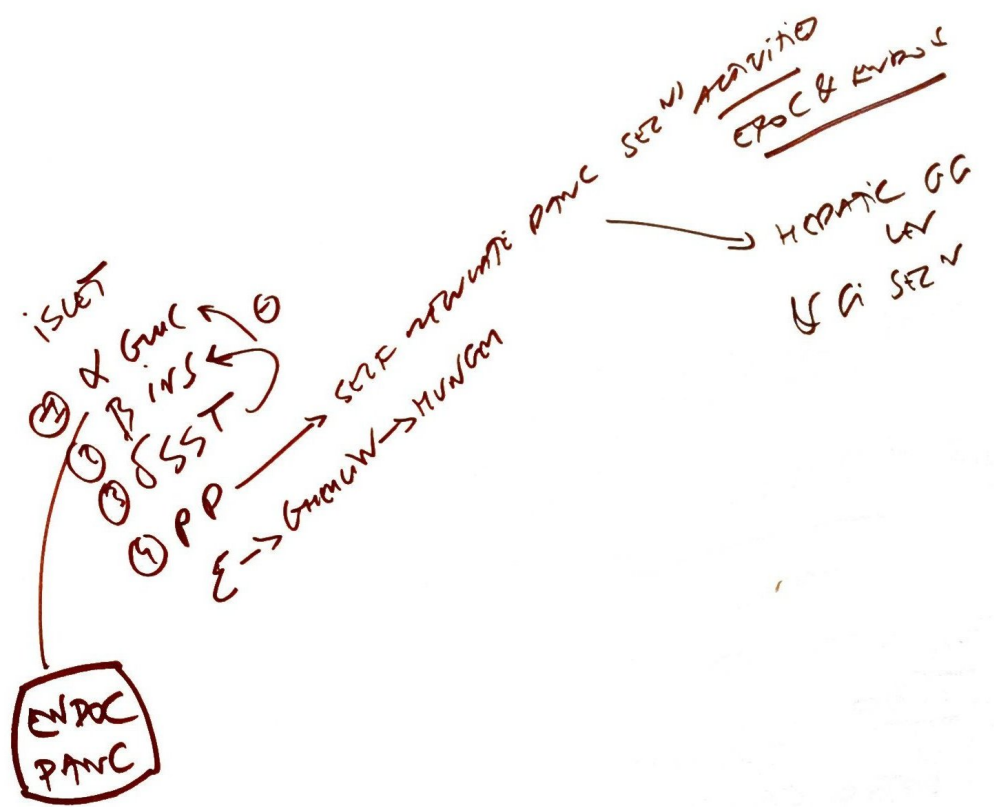 iSLET
① α GLUC ⊖
② β iNS
③ δ SST
④ PP → SELF REGULATE PANC SEZᴺ ACTiViTiES
EXOC & ENDOC
→ HEPATiC GG
LEV
& Gi SEZᴺ
ε → GHRELiN → HUNGER
ENDOC
PANC